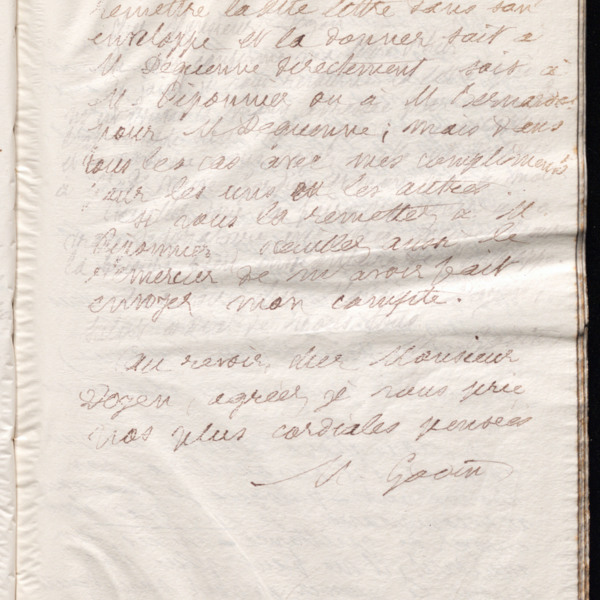 remettre la dite lettre sans son
enveloppe et la donner soit à
M Dequenne directement soit à
M. Pironnier ou à M Bernard
pour M Dequenne ; mais dans
tous les cas avec mes compliments
pour les uns ou les autres.
si vous la remettez à M
Pironnier veuillez aussi le
remercier de m'avoir fait
envoyer mon compte.
au revoir, cher Monsieur
Doyen, agréez je vous prie
nos plus cordiales pensées
M Govin